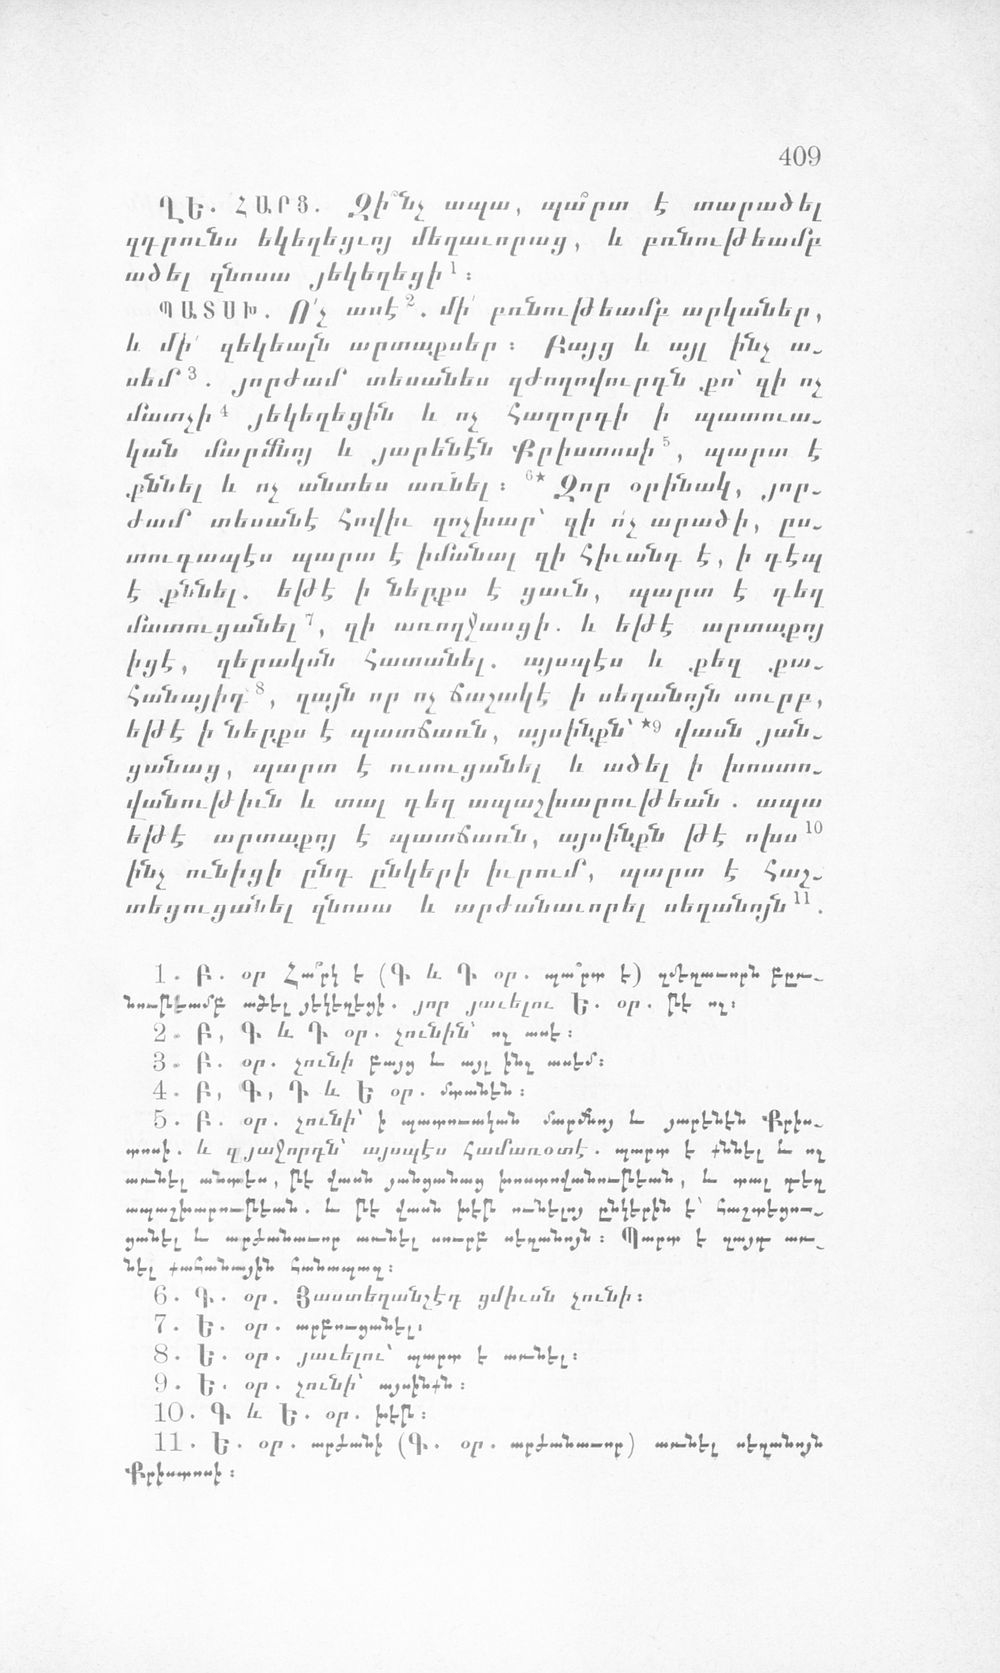 409
ՂԵ. ՀԱՐՑ. Զի՞նչ ապա, պա՞րտ է տարածել
զդրունս եկեղեցւոյ մեղաւորաց, և բռնութեամբ
ածել զնոսա յեկեղեցի ¹ ։
ՊԱՏՍԽ. Ո՛չ ասէ ². մի՛ բռնութեամբ արկաներ,
և մի՛ զեկեալն արտաքսեր ։ Բայց և այլ ինչ ա-
սեմ ³. յորժամ տեսանես զժողովուրդն քո՝ զի ոչ
մատչի ⁴ յեկեղեցին և ոչ հաղորդի ի պատուա-
կան մարմնոյ և յարենէն Քրիստոսի ⁵, պարտ է
քննել և ոչ անտես առնել ։ ⁶* Զոր օրինակ, յոր-
ժամ տեսանէ հովիւ զոչխար՝ զի ո՛չ արածի, ըս-
տուգապէս պարտ է իմանալ զի հիւանդ է, ի դէպ
է քննել. եթէ ի ներքս է ցաւն, պարտ է դեղ
մատուցանել ⁷, զի առողջասցի. և եթէ արտաքոյ
իցէ, զերակսն հատանել. այսպէս և քեզ քա-
հանայիդ ⁸, զայն որ ոչ ճաշակէ ի սեղանոյն սուրբ,
եթէ ի ներքս է պատճառն, այսինքն՝ *⁹ վասն յան-
ցանաց, պարտ է ուսուցանել և ածել ի խոստո-
վանութիւն և տալ դեղ ապաշխարութեան. ապա
եթէ արտաքոյ է պատճառն, այսինքն թէ ոխս ¹⁰
ինչ ունիցի ընդ ընկերի իւրում, պարտ է հաշ-
տեցուցանել զնոսա և արժանաւորել սեղանոյն ¹¹.
1. Բ. օր Հա՞րկ է (Գ և Դ օր. պա՞րտ է) զմեղաւորն բըռ-
նութեամբ ածել յեկեղեցի. յոր յաւելու Ե. օր. թէ ոչ։
2. Բ, Գ և Դ օր. չունին՝ ոչ ասէ։
3. Բ. օր. չունի բայց և այլ ինչ ասեմ։
4. Բ, Գ, Դ և Ե օր. մտանեն։
5. Բ. օր. չունի՝ ի պատուական մարմնոյ և յարենէն Քրիս-
տոսի. և զյաջորդն՝ այսպէս համառօտէ. պարտ է քննել և ոչ
առնել անտես, թէ վասն յանցանաց խոստովանութեան, և տալ դեղ
ապաշխարութեան. և թէ վասն խէթ ունելոյ ընկերին է՝ հաշտեցու-
ցանել և արժանաւոր առնել սուրբ սեղանոյն։ Պարտ է զայդ առ-
նել քահանային հանապազ։
6. Գ. օր. Յաստեղանչէդ ցմիւսն չունի։
7. Ե. օր. արբուցանել։
8. Ե. օր. յաւելու՝ պարտ է առնել։
9. Ե. օր. չունի՝ այսինքն։
10. Գ և Ե. օր. խէթ։
11. Ե. օր. արժանի (Գ. օր. արժանաւոր) առնել սեղանոյն
Քրիստոսի։